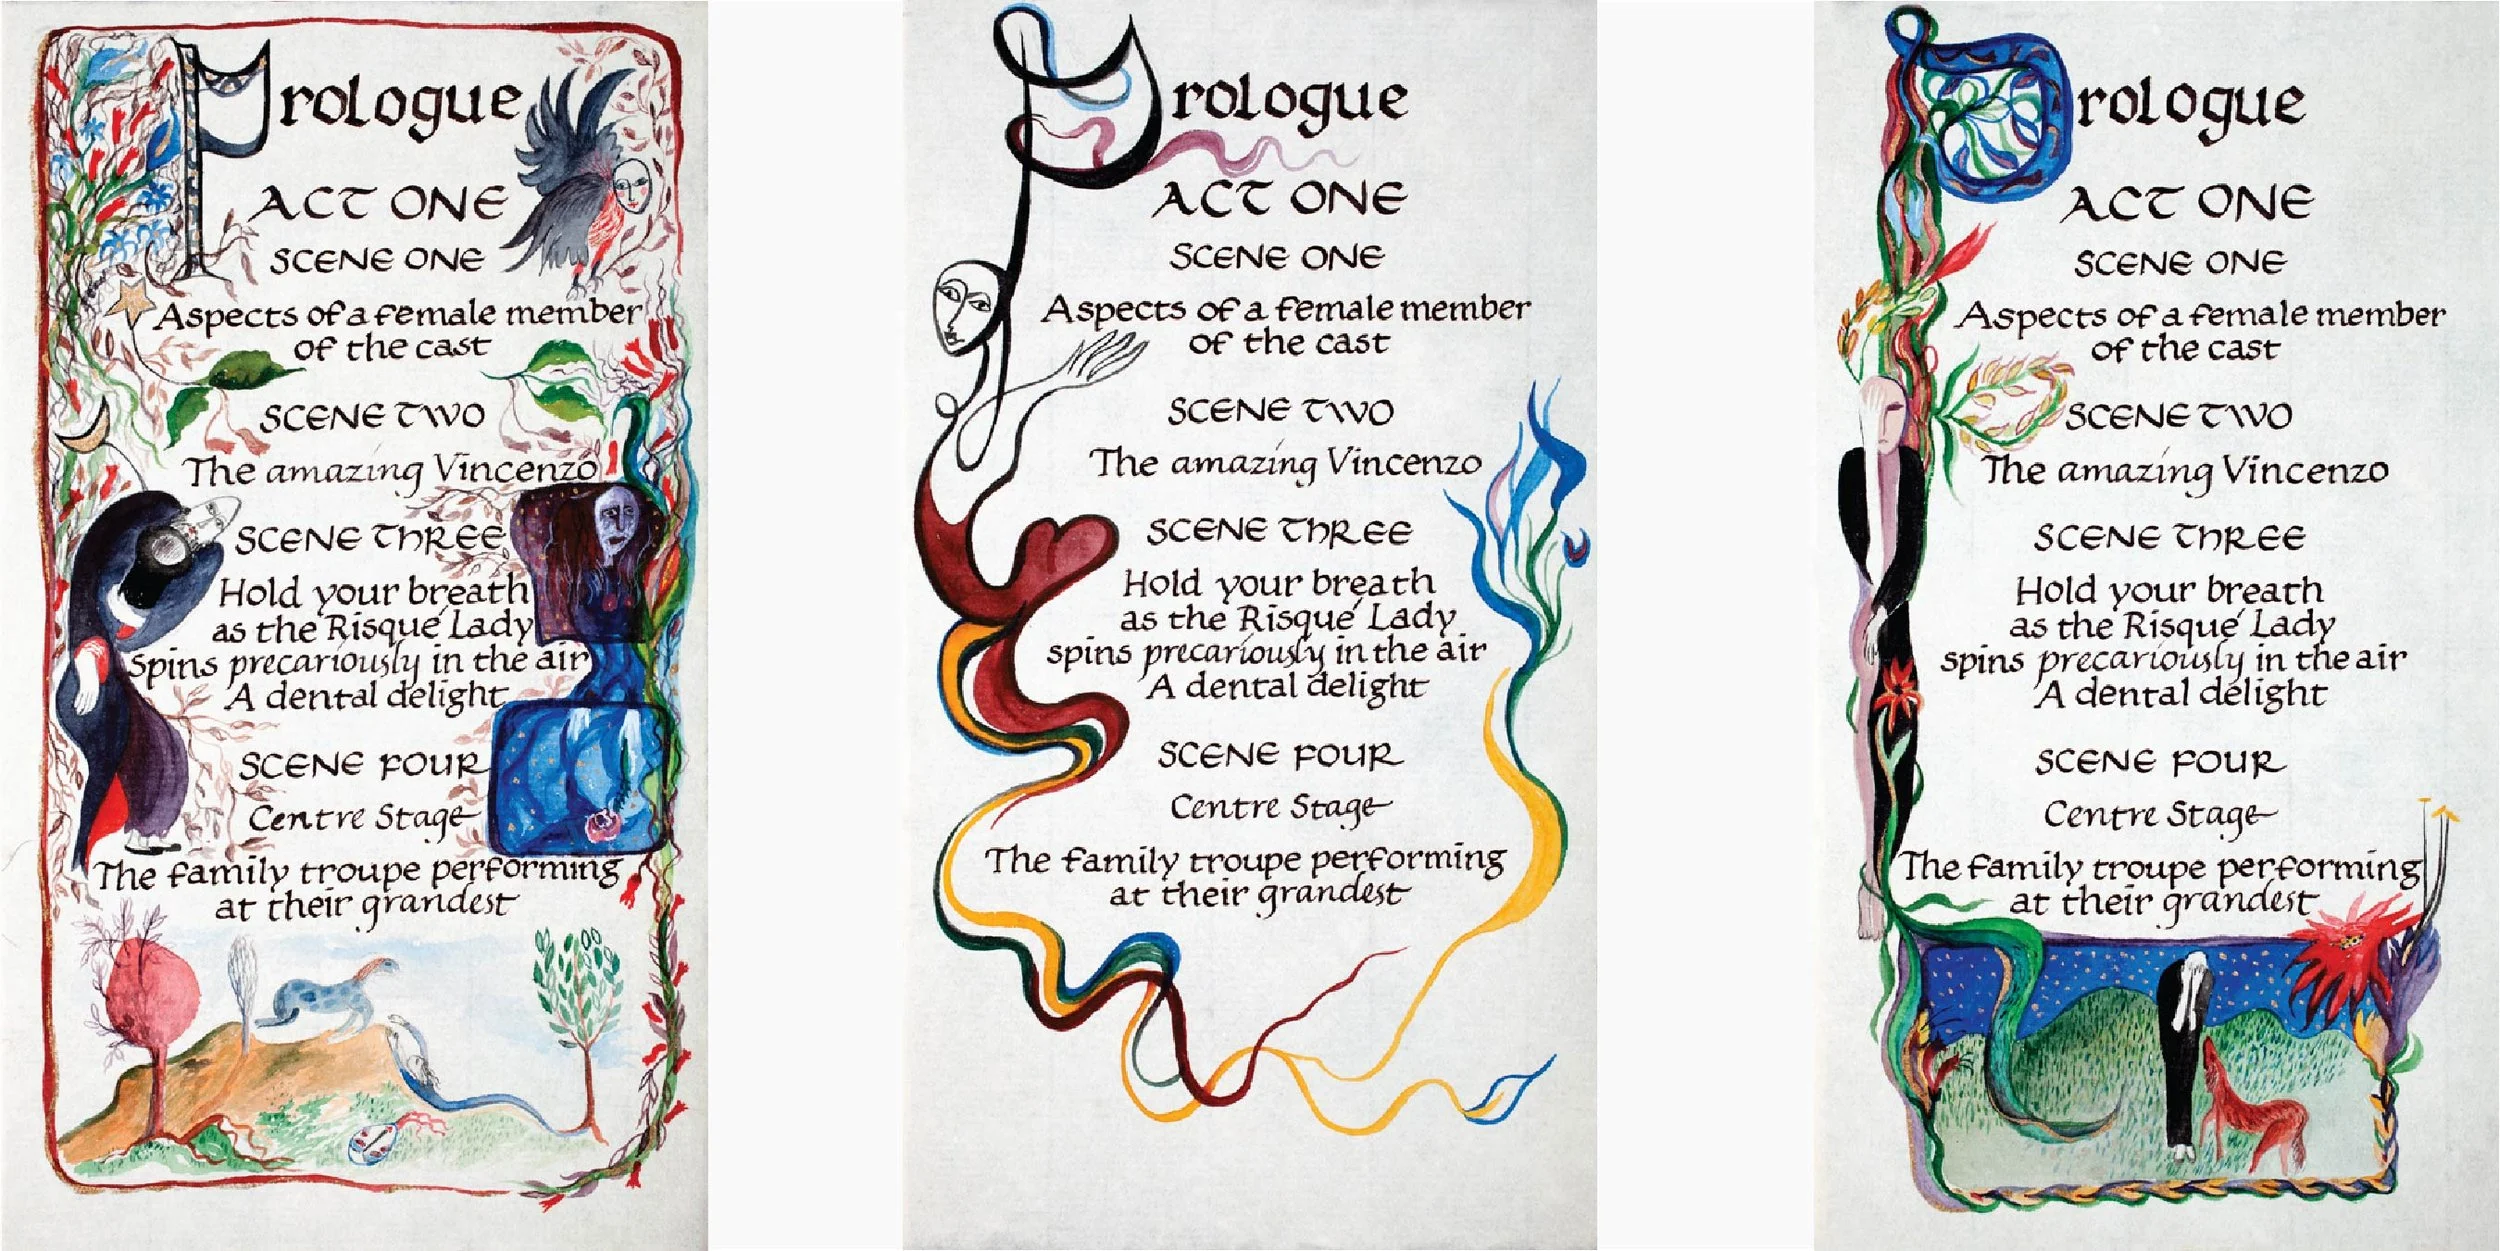 Prologue
ACT ONE
SCENE ONE
Aspects of a female member
of the cast
SCENE TWO
The amazing Vincenzo
SCENE THREE
Hold your breath
as the Risqué Lady
spins precariously in the air
A dental delight
SCENE FOUR
Centre Stage
The family troupe performing
at their grandest
Prologue
ACT ONE
SCENE ONE
Aspects of a female member
of the cast
SCENE TWO
The amazing Vincenzo
SCENE THREE
Hold your breath
as the Risqué Lady
spins precariously in the air
A dental delight
SCENE FOUR
Centre Stage
The family troupe performing
at their grandest
Prologue
ACT ONE
SCENE ONE
Aspects of a female member
of the cast
SCENE TWO
The amazing Vincenzo
SCENE THREE
Hold your breath
as the Risqué Lady
spins precariously in the air
A dental delight
SCENE FOUR
Centre Stage
The family troupe performing
at their grandest